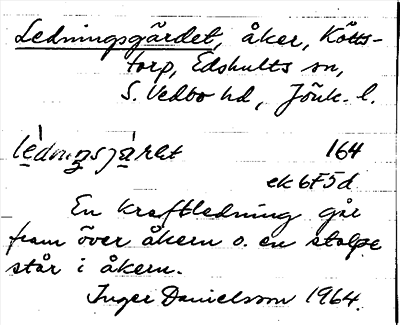 Ledningsgärdet, åker, Kötts-
torp, Edshults sn,
S. Vedbo hd, Jönk. l.
lèdnıŋsjàrɘt 164
ek 6F5d
En kraftledning går
fram över åkern o. en stolpe
står i åkern.
Inger Danielsson 1964.